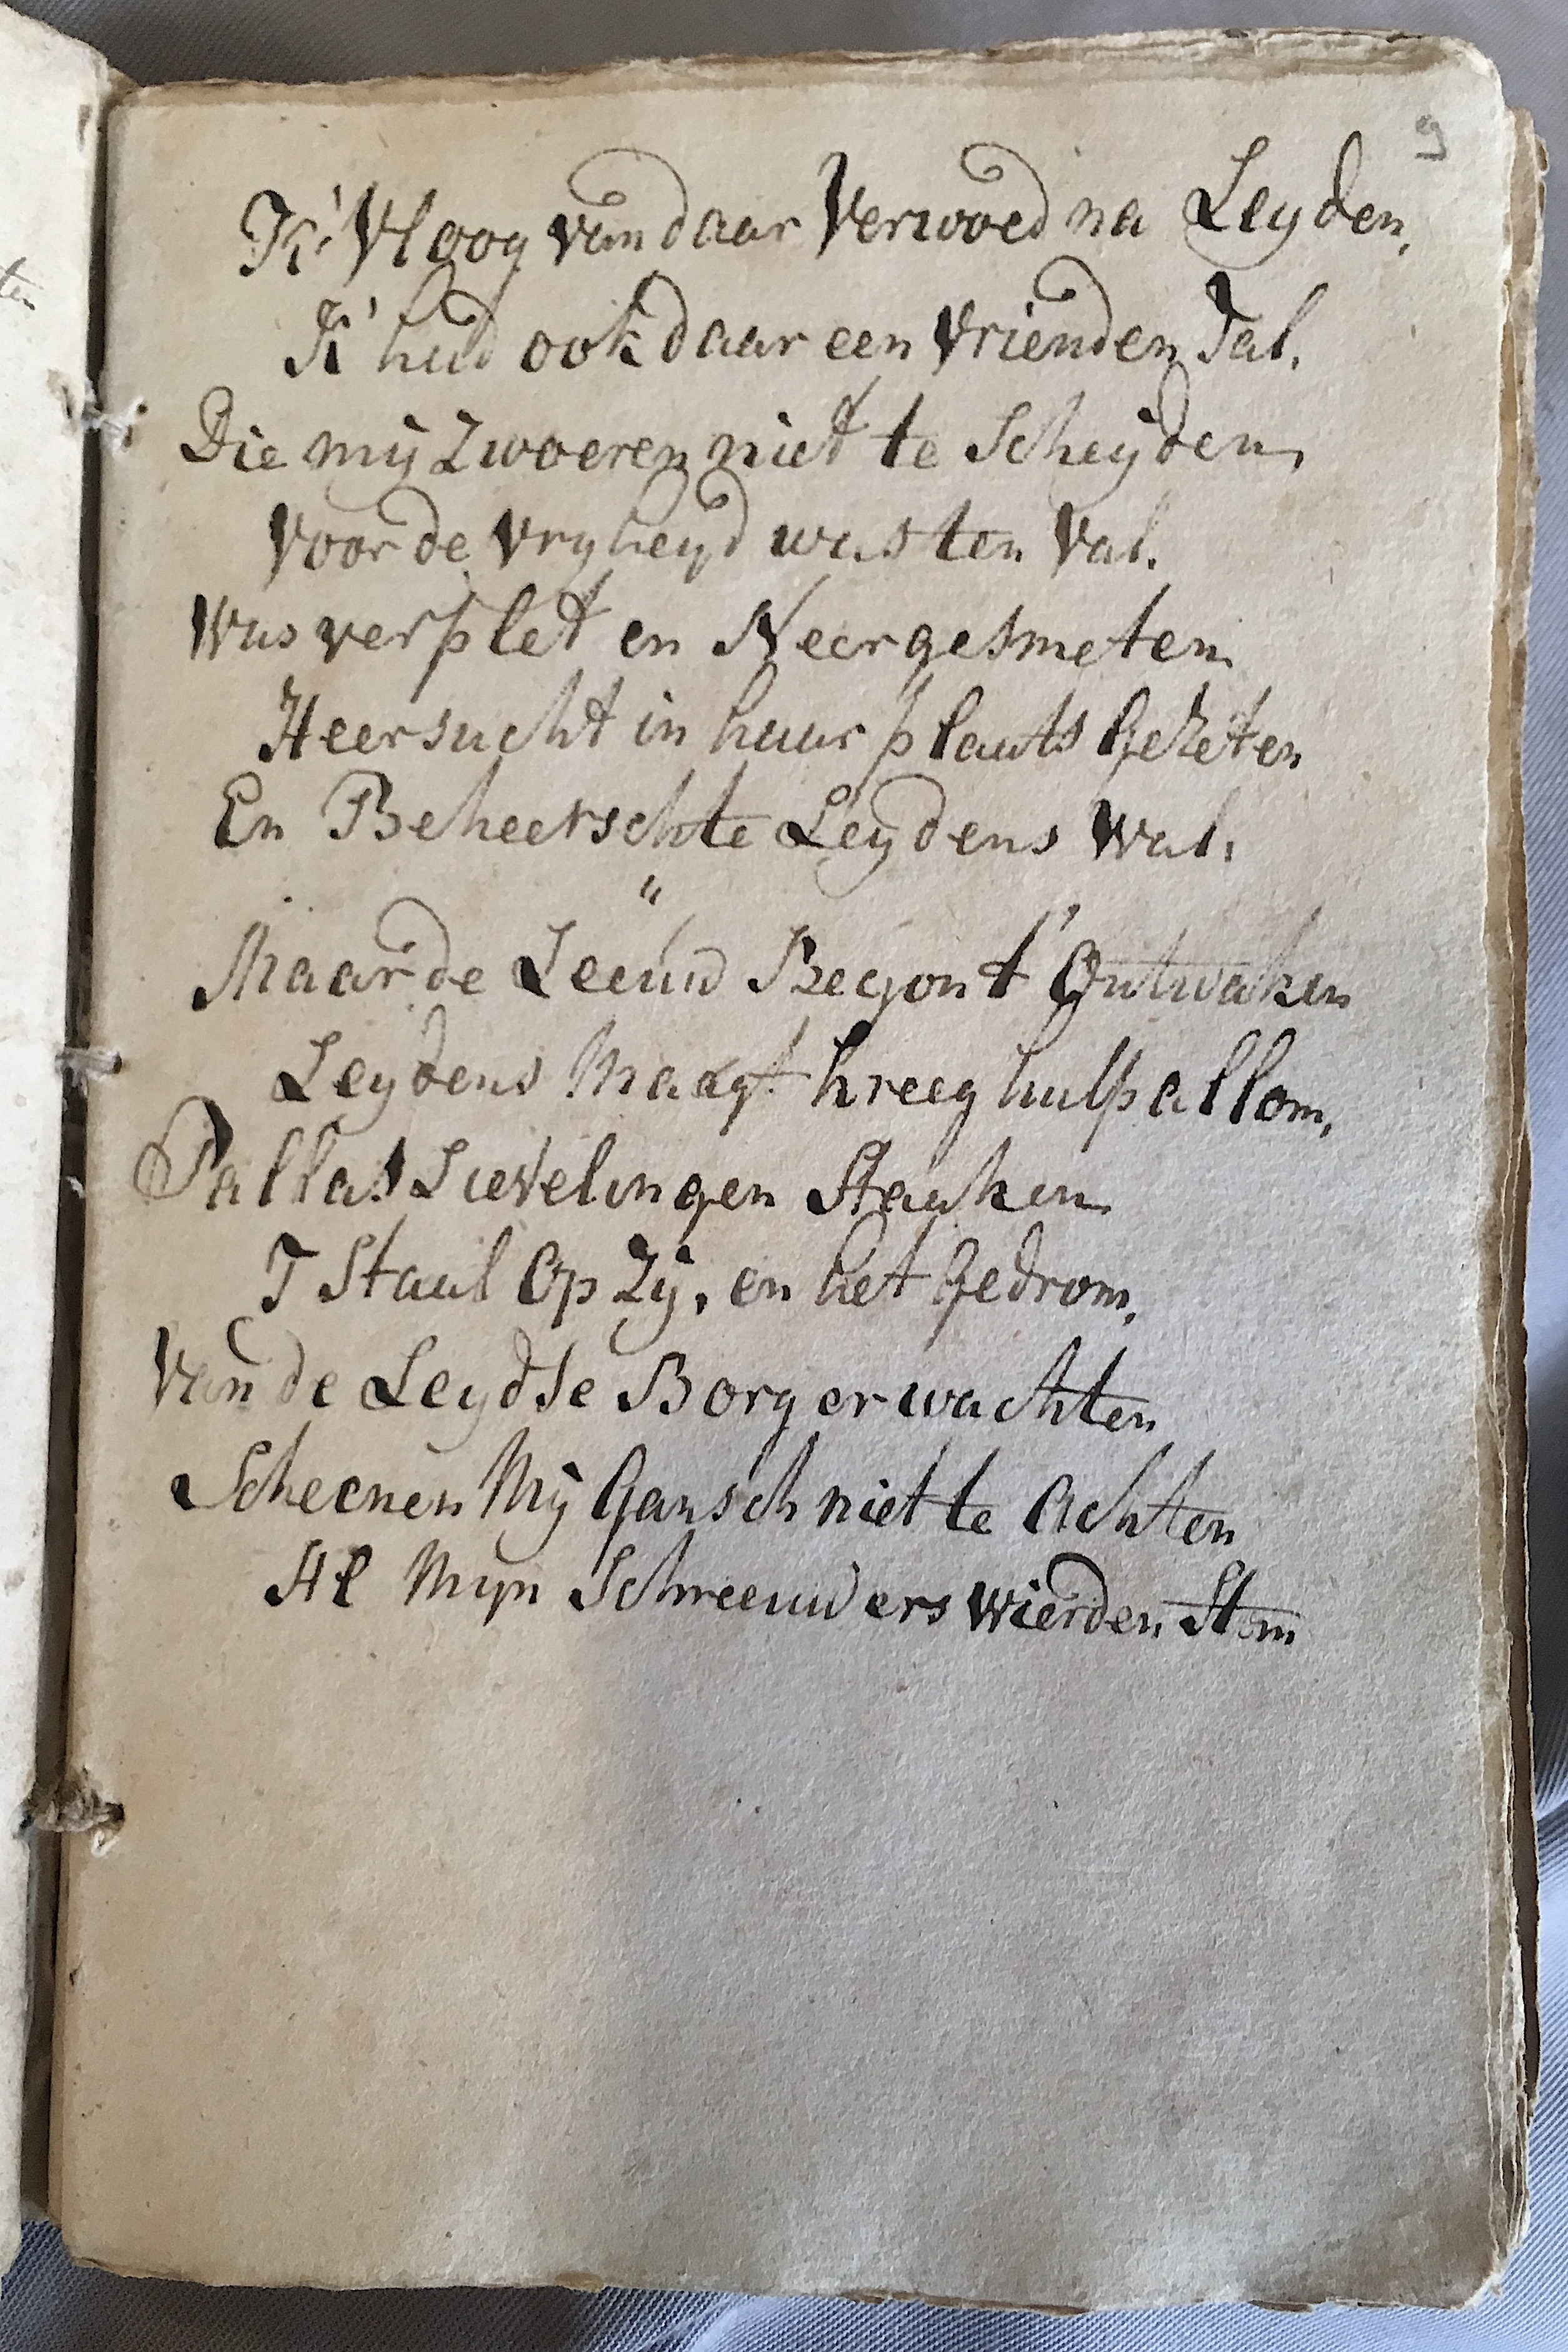 9
K' Vloog van daar Verwoed na Leyden,
K' had ook daar een Vrienden Tal,
Die mij Zwoeren niet te Scheyden,
Voor de Vryheyd was ten Val.
Was verplet en Neergesmeten
Heersucht in haar plaats Gezeten
En Beheerschte Leydens Wal,
"
Maar de Leeuw Begon t' Ontwaken
Leydens Maagt kreeg hulp allom,
Pallas Lievelingen Staaken
T Staal Op Zij, en het Gedrom,
Van de Leydse Borgerwachten
Scheenen Mij Gansch niet te Achten
Al Mijn Schreeuwers Wierden Stom